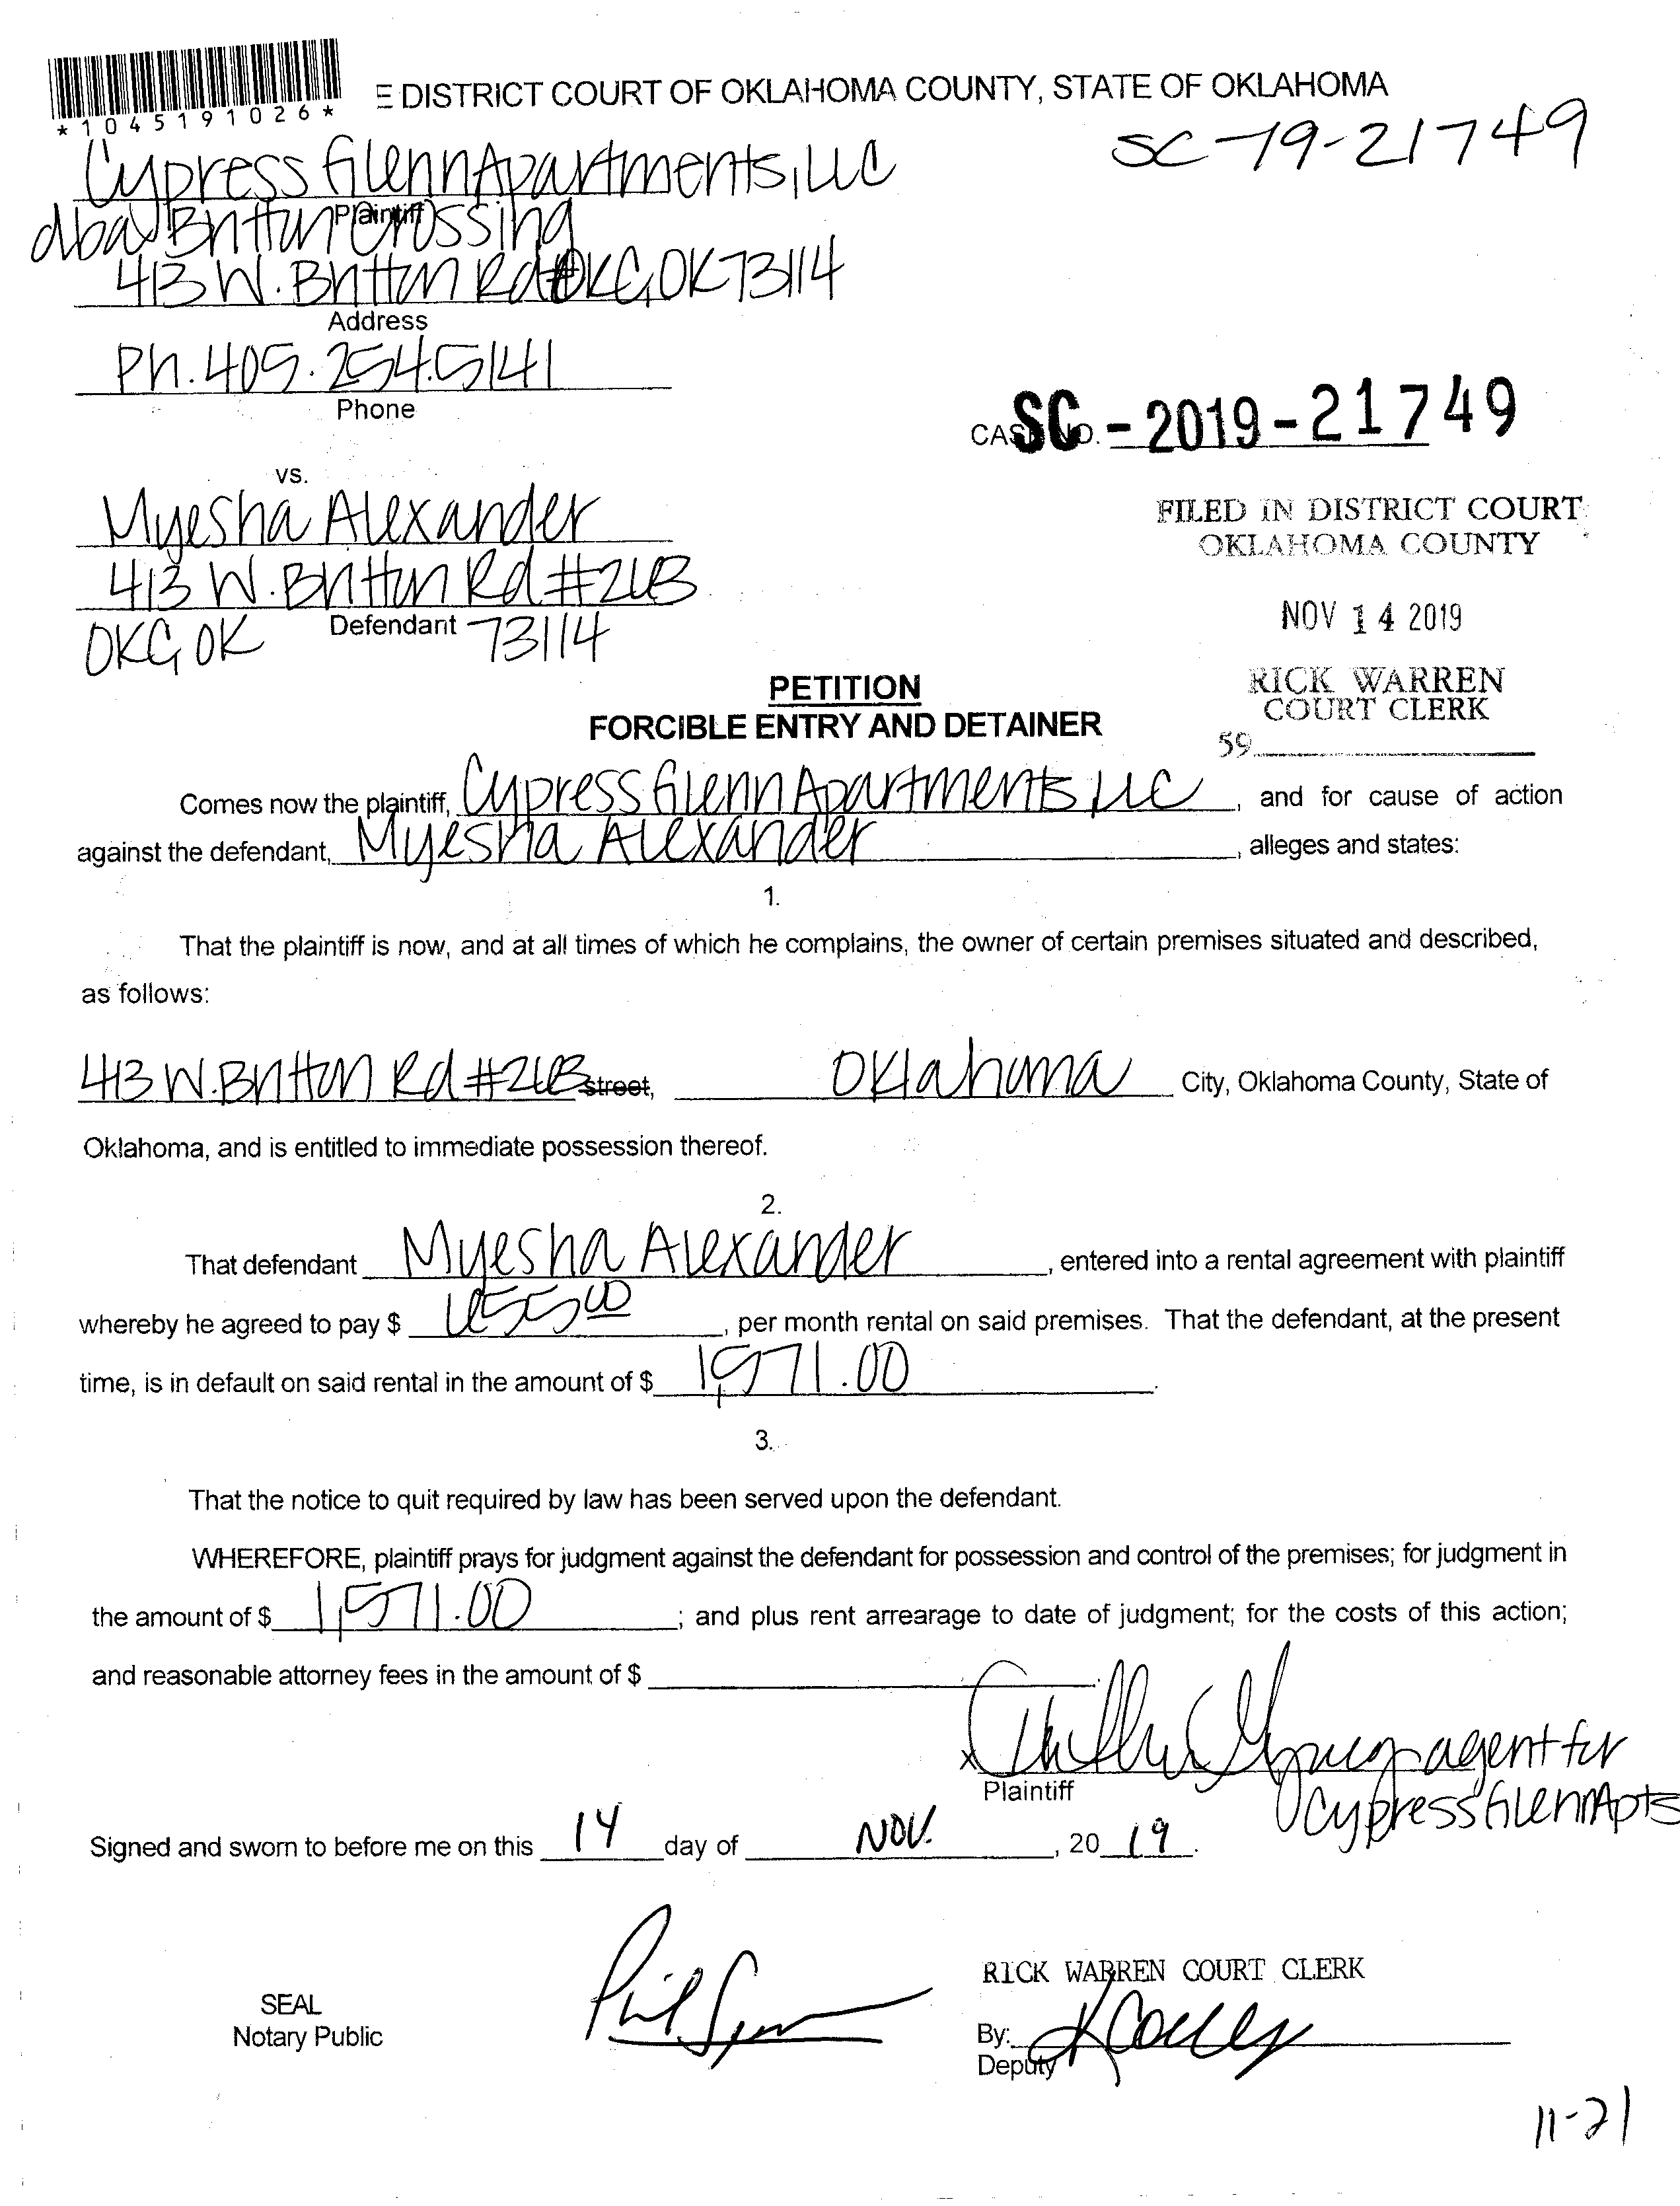 *1045191026*
E DISTRICT COURT OF OKLAHOMA COUNTY, STATE OF OKLAHOMA
SC-19-21749
Cypress Glenn Apartments, LLC
Plaintiff
dba Britton Crossing
413 W. Britton Rd OKC, OK 73114
Address
Ph. 405.254.5141
Phone
CASE NO. SC-2019-21749
vs.
Myesha Alexander
FILED IN DISTRICT COURT
OKLAHOMA COUNTY
413 W. Britton Rd #26B
Defendant
OKC OK 73114
NOV 14 2019
RICK WARREN
COURT CLERK
59
PETITION
FORCIBLE ENTRY AND DETAINER
Comes now the plaintiff, Cypress Glenn Apartments LLC, and for cause of action
against the defendant, Myesha Alexander, alleges and states:
1.
That the plaintiff is now, and at all times of which he complains, the owner of certain premises situated and described,
as follows:
413 W. Britton Rd #26B street, Oklahoma City, Oklahoma County, State of
Oklahoma, and is entitled to immediate possession thereof.
2.
That defendant Myesha Alexander, entered into a rental agreement with plaintiff
whereby he agreed to pay $ 655.00, per month rental on said premises. That the defendant, at the present
time, is in default on said rental in the amount of $ 1,571.00.
3.
That the notice to quit required by law has been served upon the defendant.
WHEREFORE, plaintiff prays for judgment against the defendant for possession and control of the premises; for judgment in
the amount of $ 1,571.00; and plus rent arrearage to date of judgment; for the costs of this action;
and reasonable attorney fees in the amount of $
x agent for
Plaintiff
Cypress Glenn Apts
Signed and sworn to before me on this 14 day of NOV., 2019.
RICK WARREN COURT CLERK
SEAL
Notary Public
By:
Deputy
11-21